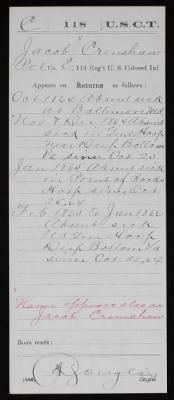 C 118 U.S.C.T.
Jacob Crenshaw
Pvt., Co. E, 118 Reg't U. S. Colored Inf
Appears on Returns as follows:
Oct 1864 Absent sick
at Baltimore Md
Nov & Dec 1864 Absent
sick in Hosp
near Deep Bottom
Va since Oct 22
Jan 1865 Absent sick
in Point of Rocks
Hosp since Oct
Feb 1865 to Jan 1866
Absent sick
US Gen Hosp
Deep Bottom Va
since Oct
Name appears also as
Jacob Crimshaw
Book mark:
Copyist.